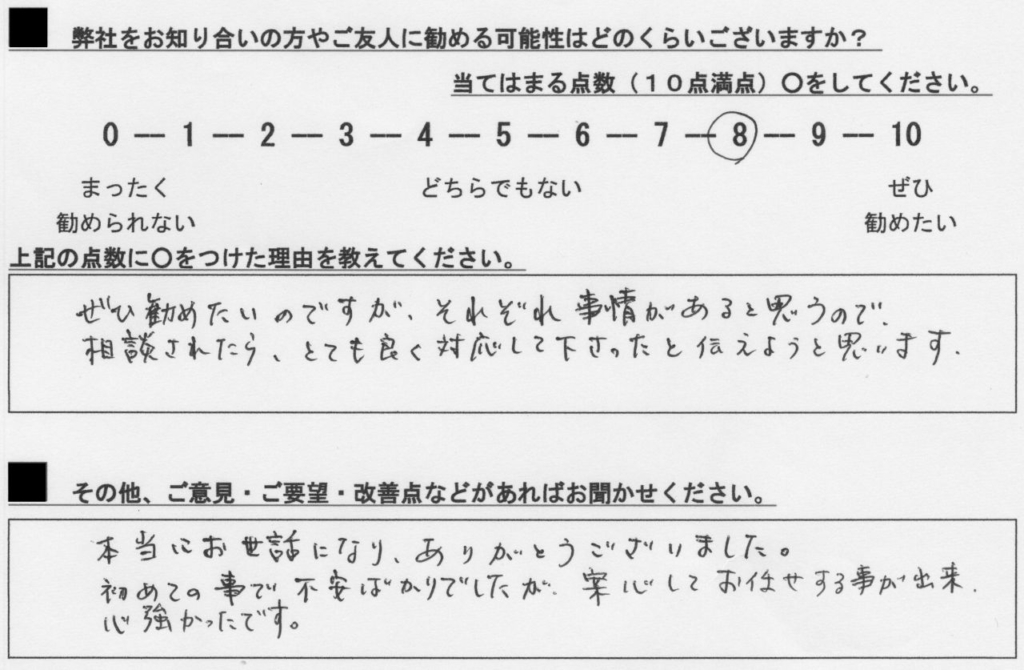 弊社をお知り合いの方やご友人に勧める可能性はどのくらいございますか？
当てはまる点数（１０点満点）〇をしてください。
0 ― 1 ― 2 ― 3 ― 4 ― 5 ― 6 ― 7 ― 8 ― 9 ― 10
まったく どちらでもない ぜひ
勧められない 勧めたい
上記の点数に〇をつけた理由を教えてください。
ぜひ勧めたいのですが、それぞれ事情があると思うので、
相談されたら、とても良く対応して下さったと伝えようと思います.
その他、ご意見・ご要望・改善点などがあればお聞かせください。
本当にお世話になり、ありがとうございました。
初めての事で不安ばかりでしたが、案心してお任せする事が出来.
心強かったです。